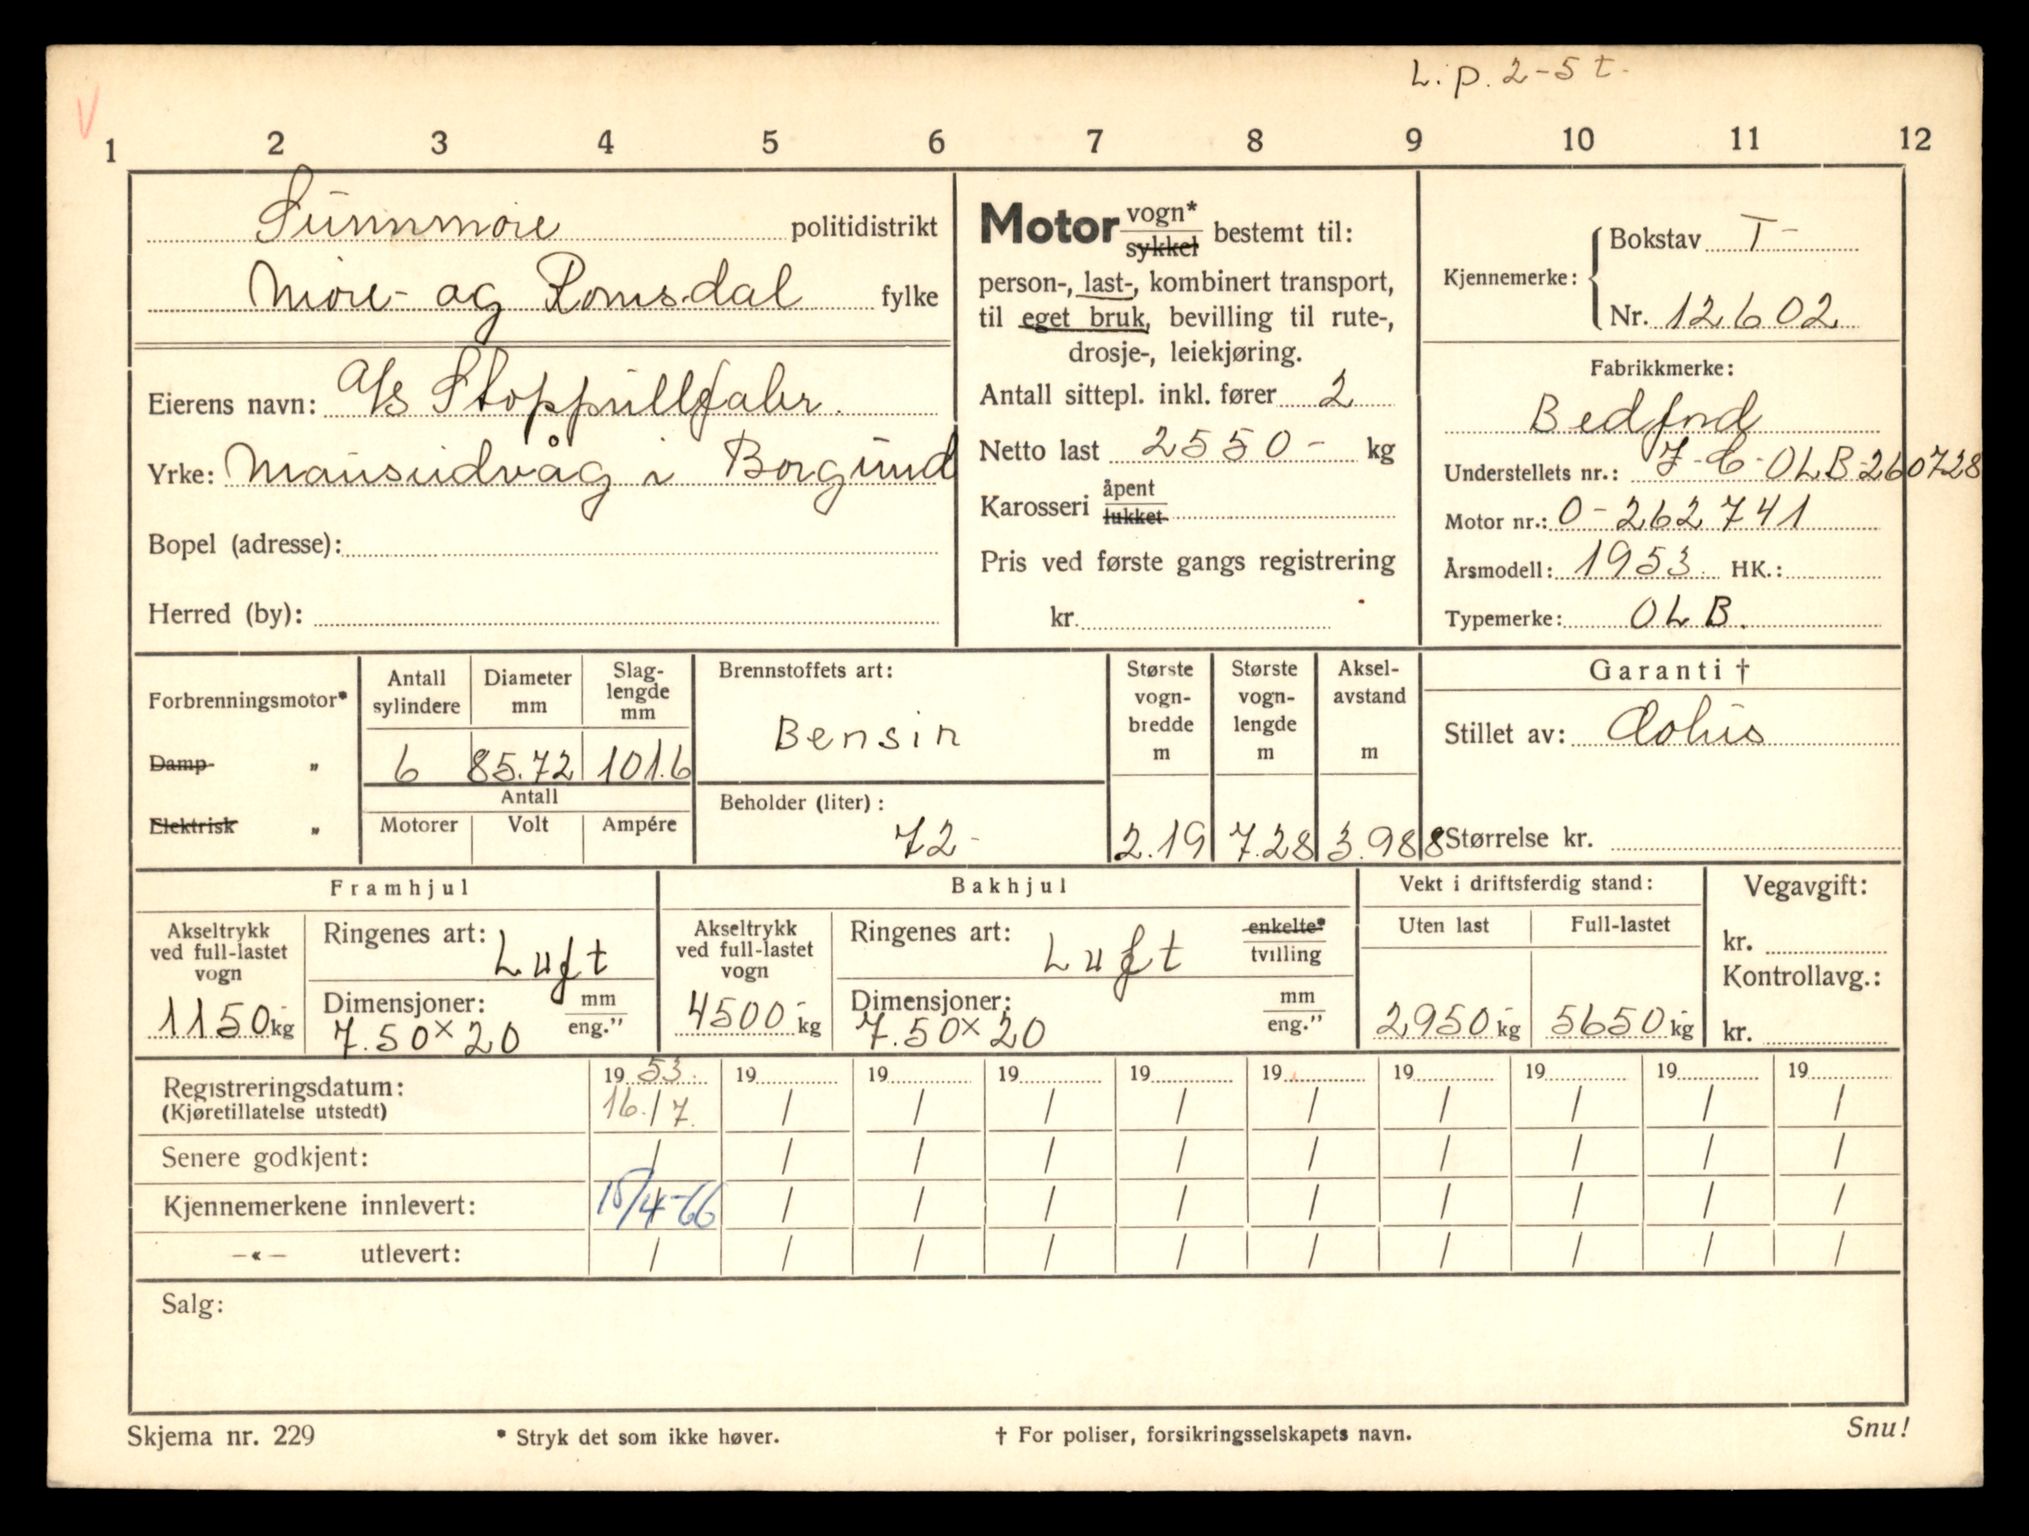 L.p. 2-5 t.
V
1 2 3 4 5 6 7 8 9 10 11 12
Sunnmøre politidistrikt
Møre- og Romsdal fylke
Eierens navn: A/S Stoppullfabr.
Yrke: Mausundvåg i Borgund
Bopel (adresse):
Herred (by):
Motor vogn* / sykkel bestemt til:
person-, last-, kombinert transport,
til eget bruk, bevilling til rute-,
drosje-, leiekjøring.
Antall sittepl. inkl. fører 2
Netto last 2550- kg
Karosseri åpent / lukket
Pris ved første gangs registrering
kr.
Kjennemerke: Bokstav T-
Nr. 12602
Fabrikkmerke:
Bedford
Understellets nr.: OLB-260728
Motor nr.: O-262741
Årsmodell: 1953 HK.:
Typemerke: OLB.
Forbrenningsmotor*
Damp „
Elektrisk „
Antall sylindere
6
Diameter mm
85.72
Slag-lengde mm
101.6
Antall
Motorer Volt Ampére
Brennstoffets art:
Bensin
Beholder (liter):
72-
Største vogn-bredde m
2.19
Største vogn-lengde m
7.28
Aksel-avstand m
3.988
Garanti †
Stillet av: Æolus
Størrelse kr.
Framhjul
Akseltrykk ved full-lastet vogn
1150- kg
Ringenes art: Luft
Dimensjoner: mm / eng."
7.50x20
Bakhjul
Akseltrykk ved full-lastet vogn
4500- kg
Ringenes art: Luft enkelte* / tvilling
Dimensjoner: mm / eng."
7.50x20
Vekt i driftsferdig stand:
Uten last Full-lastet
2950- kg 5650- kg
Vegavgift:
kr.
Kontrollavg.:
kr.
19 53. 19 19 19 19 19 19 19 19 19
Registreringsdatum: 16./7. / / / / / / / / /
(Kjøretillatelse utstedt)
Senere godkjent: / / / / / / / / / /
Kjennemerkene innlevert: 15/4-66 / / / / / / / / /
–«– utlevert: / / / / / / / / / /
Salg:
Skjema nr. 229 * Stryk det som ikke høver. † For poliser, forsikringsselskapets navn. Snu!